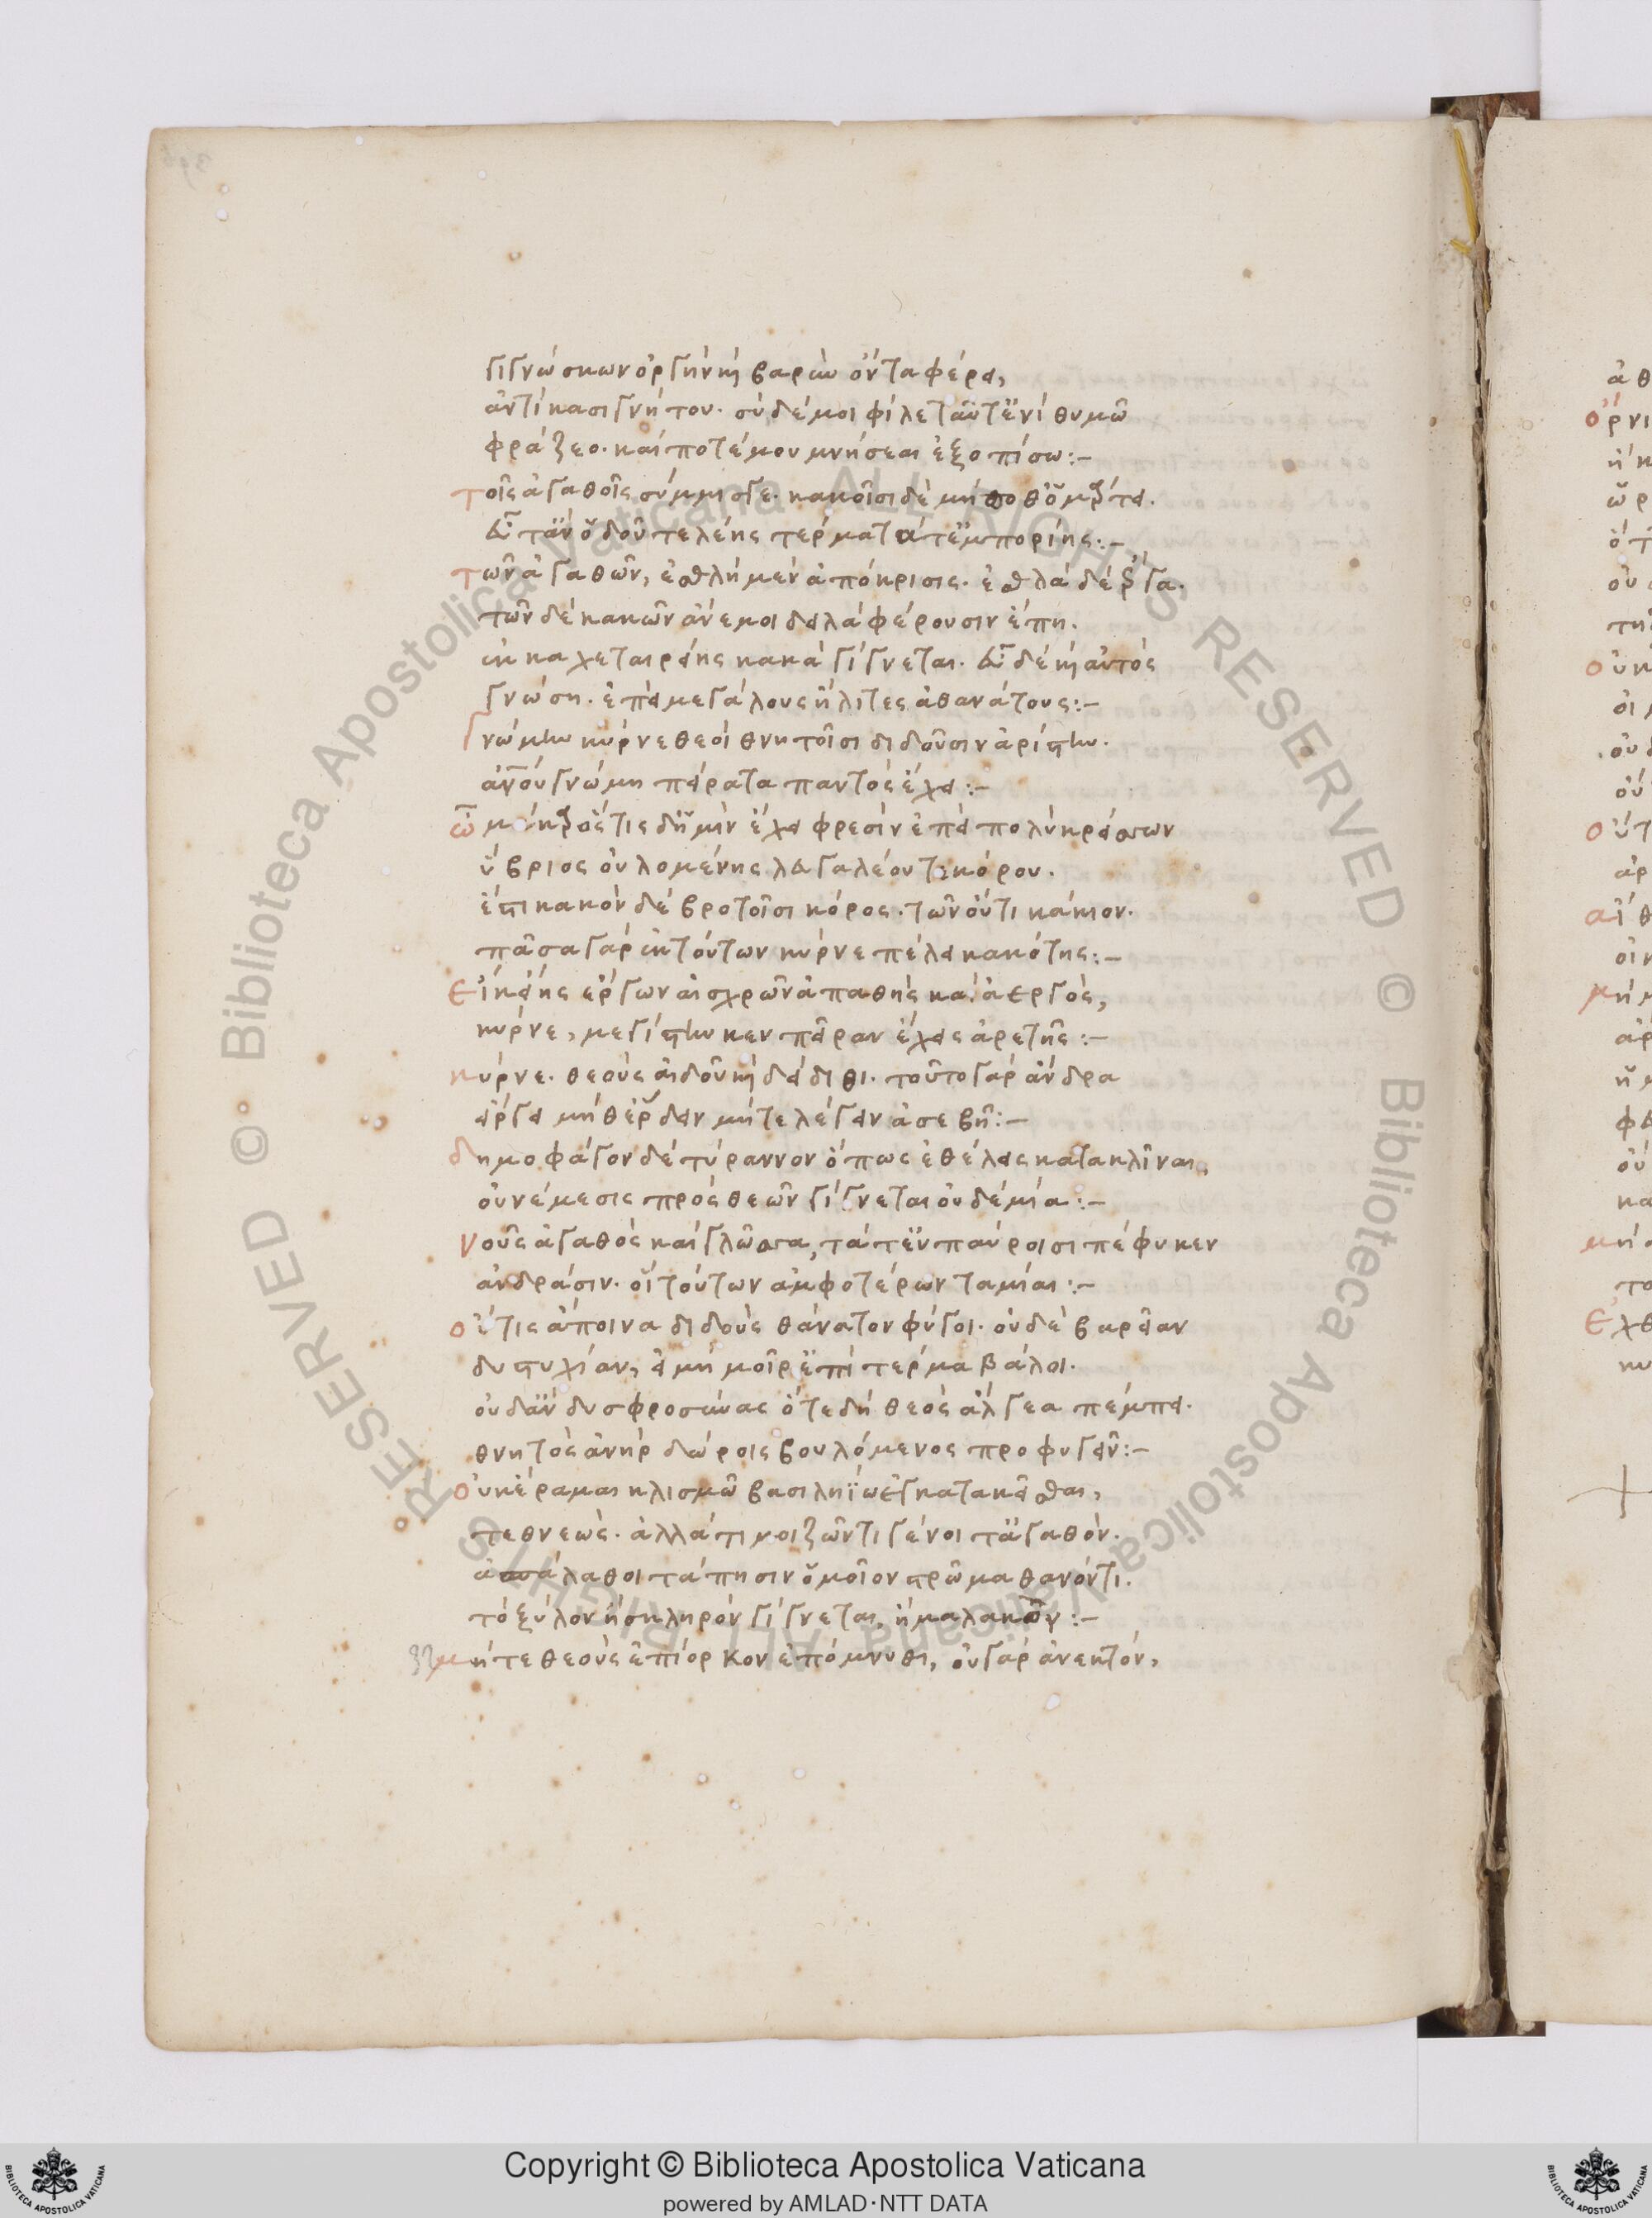 γιγνώσκων ὀργὴν καὶ βαρὺν ὄντα φέρει,
ἀντὶ κασιγνήτου. σὺ δέ μοι φίλε ταῦτ' ἐνὶ θυμῶ
φράζεο. καί ποτέ μου μνήσεαι ἐξοπίσω:-
τοῖς ἀγαθοῖς σύμμισγε. κακοῖσι δὲ μή ποθ' ὁμάρτει.
εὖτ' ἂν ὁδοῦ τελέης τέρματά τ' ἐμπορίης:-
τῶν ἀγαθῶν, ἐσθλὴ μὲν ἀπόκρισις. ἐσθλὰ δὲ ἔργα.
τῶν δὲ κακῶν ἄνεμοι δειλὰ φέρουσιν ἔπη.
ἐκ καχεταιρείης κακὰ γίγνεται. εὖ δὲ καὶ αὐτὸς
γνώση. ἐπεὶ μεγάλους ἤλιτες ἀθανάτους:-
Γνώμην κύρνε θεοὶ θνητοῖσι διδοῦσιν ἀρίστην.
ἀνου γνώμη πείρατα παντὸς ἔχει:-
ὦ μάκαρ ὅστις δή μιν ἔχει φρεσὶν ἐπεὶ πολὺ κρείσσων
ὕβριος οὐλομένης λευγαλέου τε κόρου.
ἔστι κακὸν δὲ βροτοῖσι κόρος. τῶν οὔτι κάκιον.
πᾶσα γὰρ ἐκ τούτων κύρνε πέλει κακότης:-
Εἴκ' εἴης ἔργων αἰσχρῶν ἀπαθὴς καὶ ἀεργὸς,
κύρνε, μεγίστην κεν πεῖραν ἔχεις ἀρετῆς:-
κύρνε. θεοὺς αἰδοῦ καὶ δείδιθι. τοῦτο γὰρ ἄνδρα
εἴργει μήθ' ἔρδειν μήτε λέγειν ἀσεβῆ:-
δημοφάγον δὲ τύραννον ὅπως ἐθέλεις κατακλῖναι,
οὐ νέμεσις πρὸς θεῶν γίγνεται οὐδέμία:-
Νοῦς ἀγαθὸς καὶ γλῶσσα, τά τ' ἐν παύροισι πέφυκεν
ἀνδράσιν. οἳ τούτων ἀμφοτέρων ταμίαι:-
οὔτις ἄποινα διδοὺς θάνατον φύγοι. οὐδὲ βαρεῖαν
δυστυχίαν, εἰ μὴ μοῖρ' ἐπὶ τέρμα βάλοι.
οὐδ' ἂν δυσφροσύνας ὅτε δὴ θεὸς ἄλγεα πέμπει.
θνητὸς ἀνὴρ δώροις βουλόμενος προφυγεῖν:-
Οὐκ ἔραμαι κλισμῶ βασιληΐω ἐγκατακεῖσθαι,
τεθνεώς. ἀλλά τι μοι ζῶντι γένοι τἀγαθόν.
ἀσπάλαθοι τάπησιν ὁμοῖον στρῶμα θανόντι.
τὸ ξύλον ἢ σκληρὸν γίγνεται, ἢ μαλακὸν:-
μήτε θεοὺς ἐπίορκον ἐπόμνυθι, οὐ γὰρ ἀνεκτόν,
Copyright © Biblioteca Apostolica Vaticana
powered by AMLAD·NTT DATA